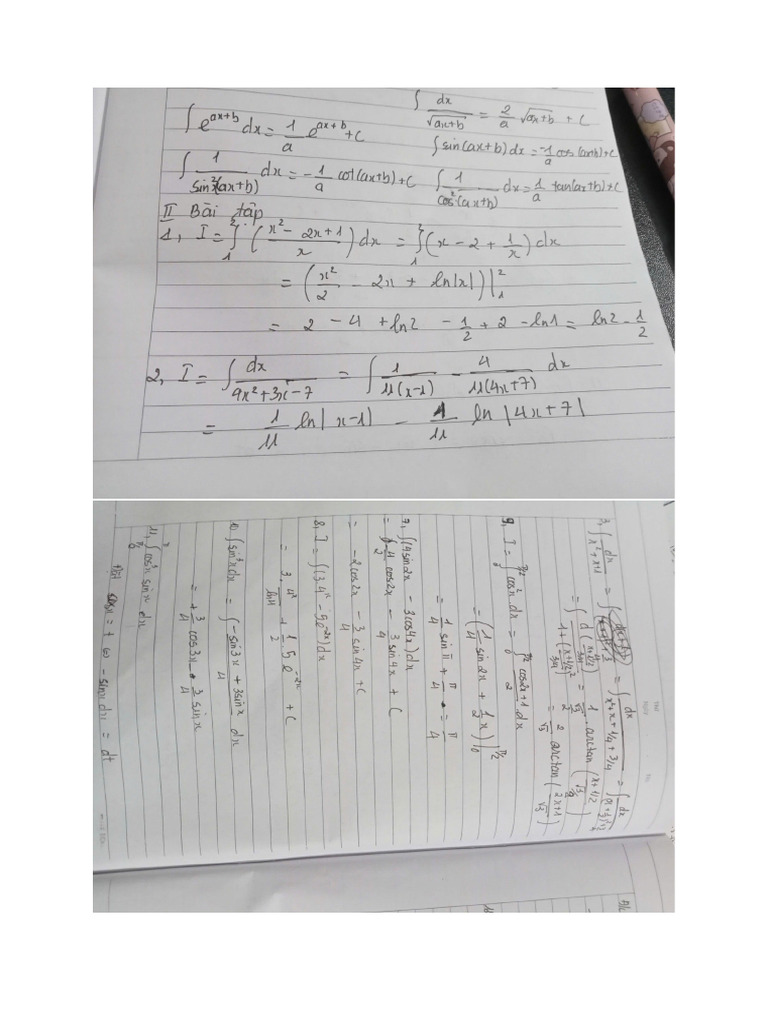 ∫ dx/√(ax+b) = 2/a √(ax+b) + C
∫ e^(ax+b) dx = 1/a e^(ax+b) + C
∫ sin(ax+b)dx = -1/a cos(ax+b)+C
∫ 1/sin²(ax+b) dx = -1/a cot(ax+b)+C
∫ 1/cos²(ax+b) dx = 1/a tan(ax+b)+C
II Bài tập
1, I = ∫₁² (x² - 2x+1 / x) dx = ∫₁² (x - 2 + 1/x) dx
= (x²/2 - 2x + ln|x|) |₁²
= 2 - 4 + ln2 - 1/2 + 2 - ln1 = ln2 - 1/2
2, I = ∫ dx/(4x²+3x-7) = ∫ 1/11(x-1) - 4/11(4x+7) dx
= 1/11 ln|x-1| - 1/11 ln|4x+7|
3, ∫ dx/(x²+x+1) = ∫ dx/(x²+x+1/4+3/4) = ∫ dx/((x+1/2)²+3/4)
= 2/√3 arctan(2x+1/√3)
9, I = ∫₀^(π/2) cos²x dx = ∫₀^(π/2) cos2x+1/2 dx
= (1/4 sin2x + 1/2 x) |₀^(π/2)
= 1/4 sin π + π/4 = π/4
7, ∫(4sin2x - 3cos4x)dx
= -4/2 cos2x - 3/4 sin4x + C
= -2cos2x - 3/4 sin4x + C
8, I = ∫(3.4ˣ - 5e^(-2x))dx
= 3.4ˣ/ln4 + 1/2 5e^(-2x) + C
10, ∫ sin³x dx = ∫ (-sin3x + 3sinx / 4) dx
11, ∫ cos²x sinx dx
Đặt cosx = t ⇔ -sinx dx = dt